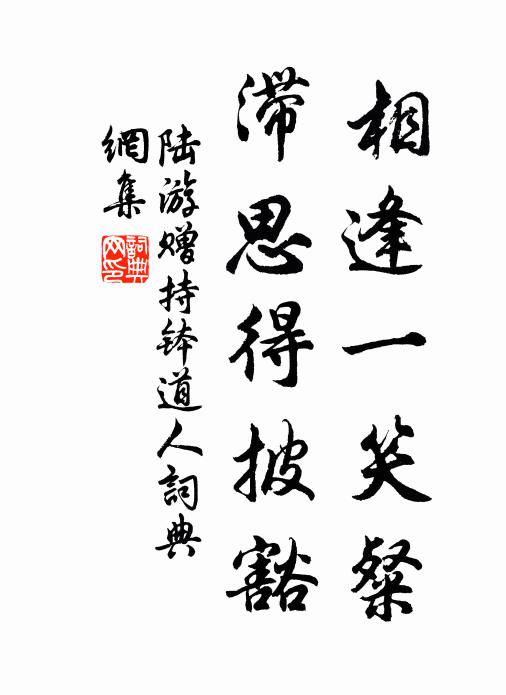 相逢一笑粲
滞思得披豁
陆游赠持钵道人詞典
網集
詞典
网印